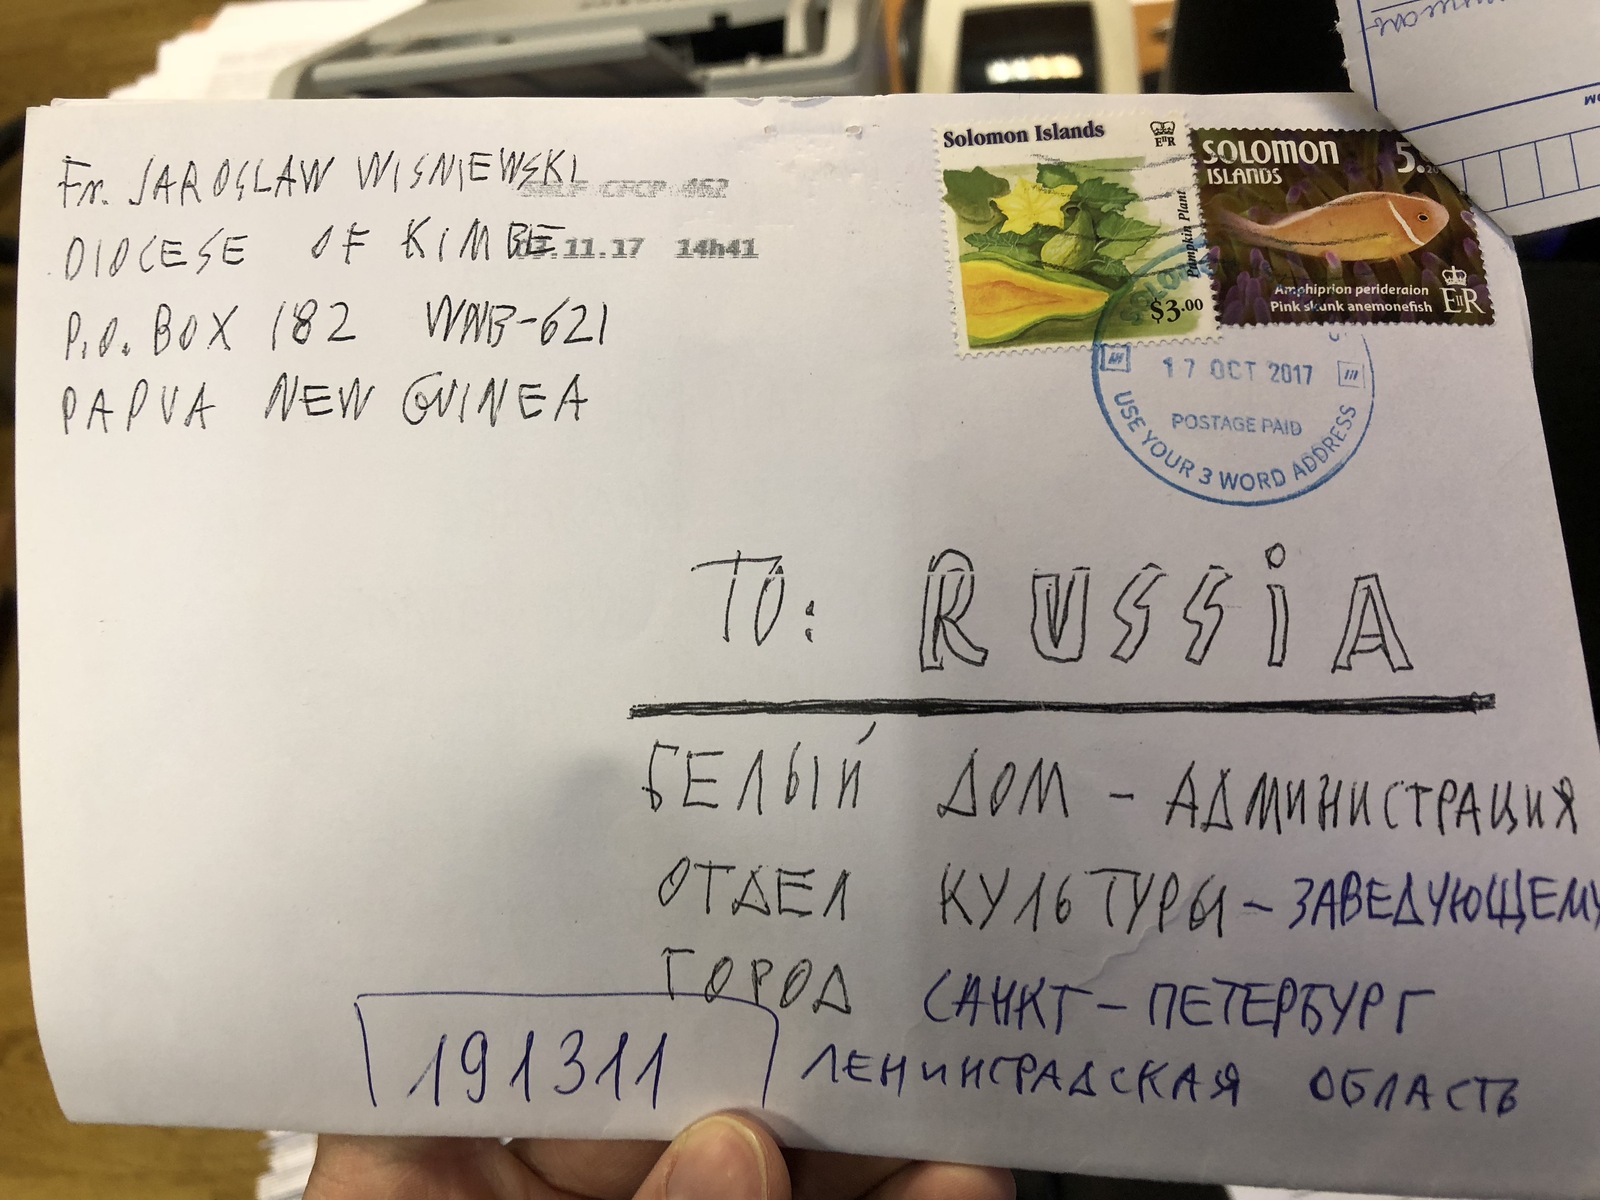 Fr. JAROSLAW WISNIEWSKI
DIOCESE OF KIMBE
P.O. BOX 182 WNB-621
PAPUA NEW GUINEA
.11.17 14h41
Solomon Islands
EIIR
Pumpkin Plant
$3.00
SOLOMON
ISLANDS
5.20
Amphiprion perideraion
Pink skunk anemonefish
EIIR
17 OCT 2017
POSTAGE PAID
USE YOUR 3 WORD ADDRESS
TO: RUSSIA
БЕЛЫЙ ДОМ - АДМИНИСТРАЦИЯ
ОТДЕЛ КУЛЬТУРЫ - ЗАВЕДУЮЩЕМУ
ГОРОД САНКТ - ПЕТЕРБУРГ
191311 ЛЕНИНГРАДСКАЯ ОБЛАСТЬ